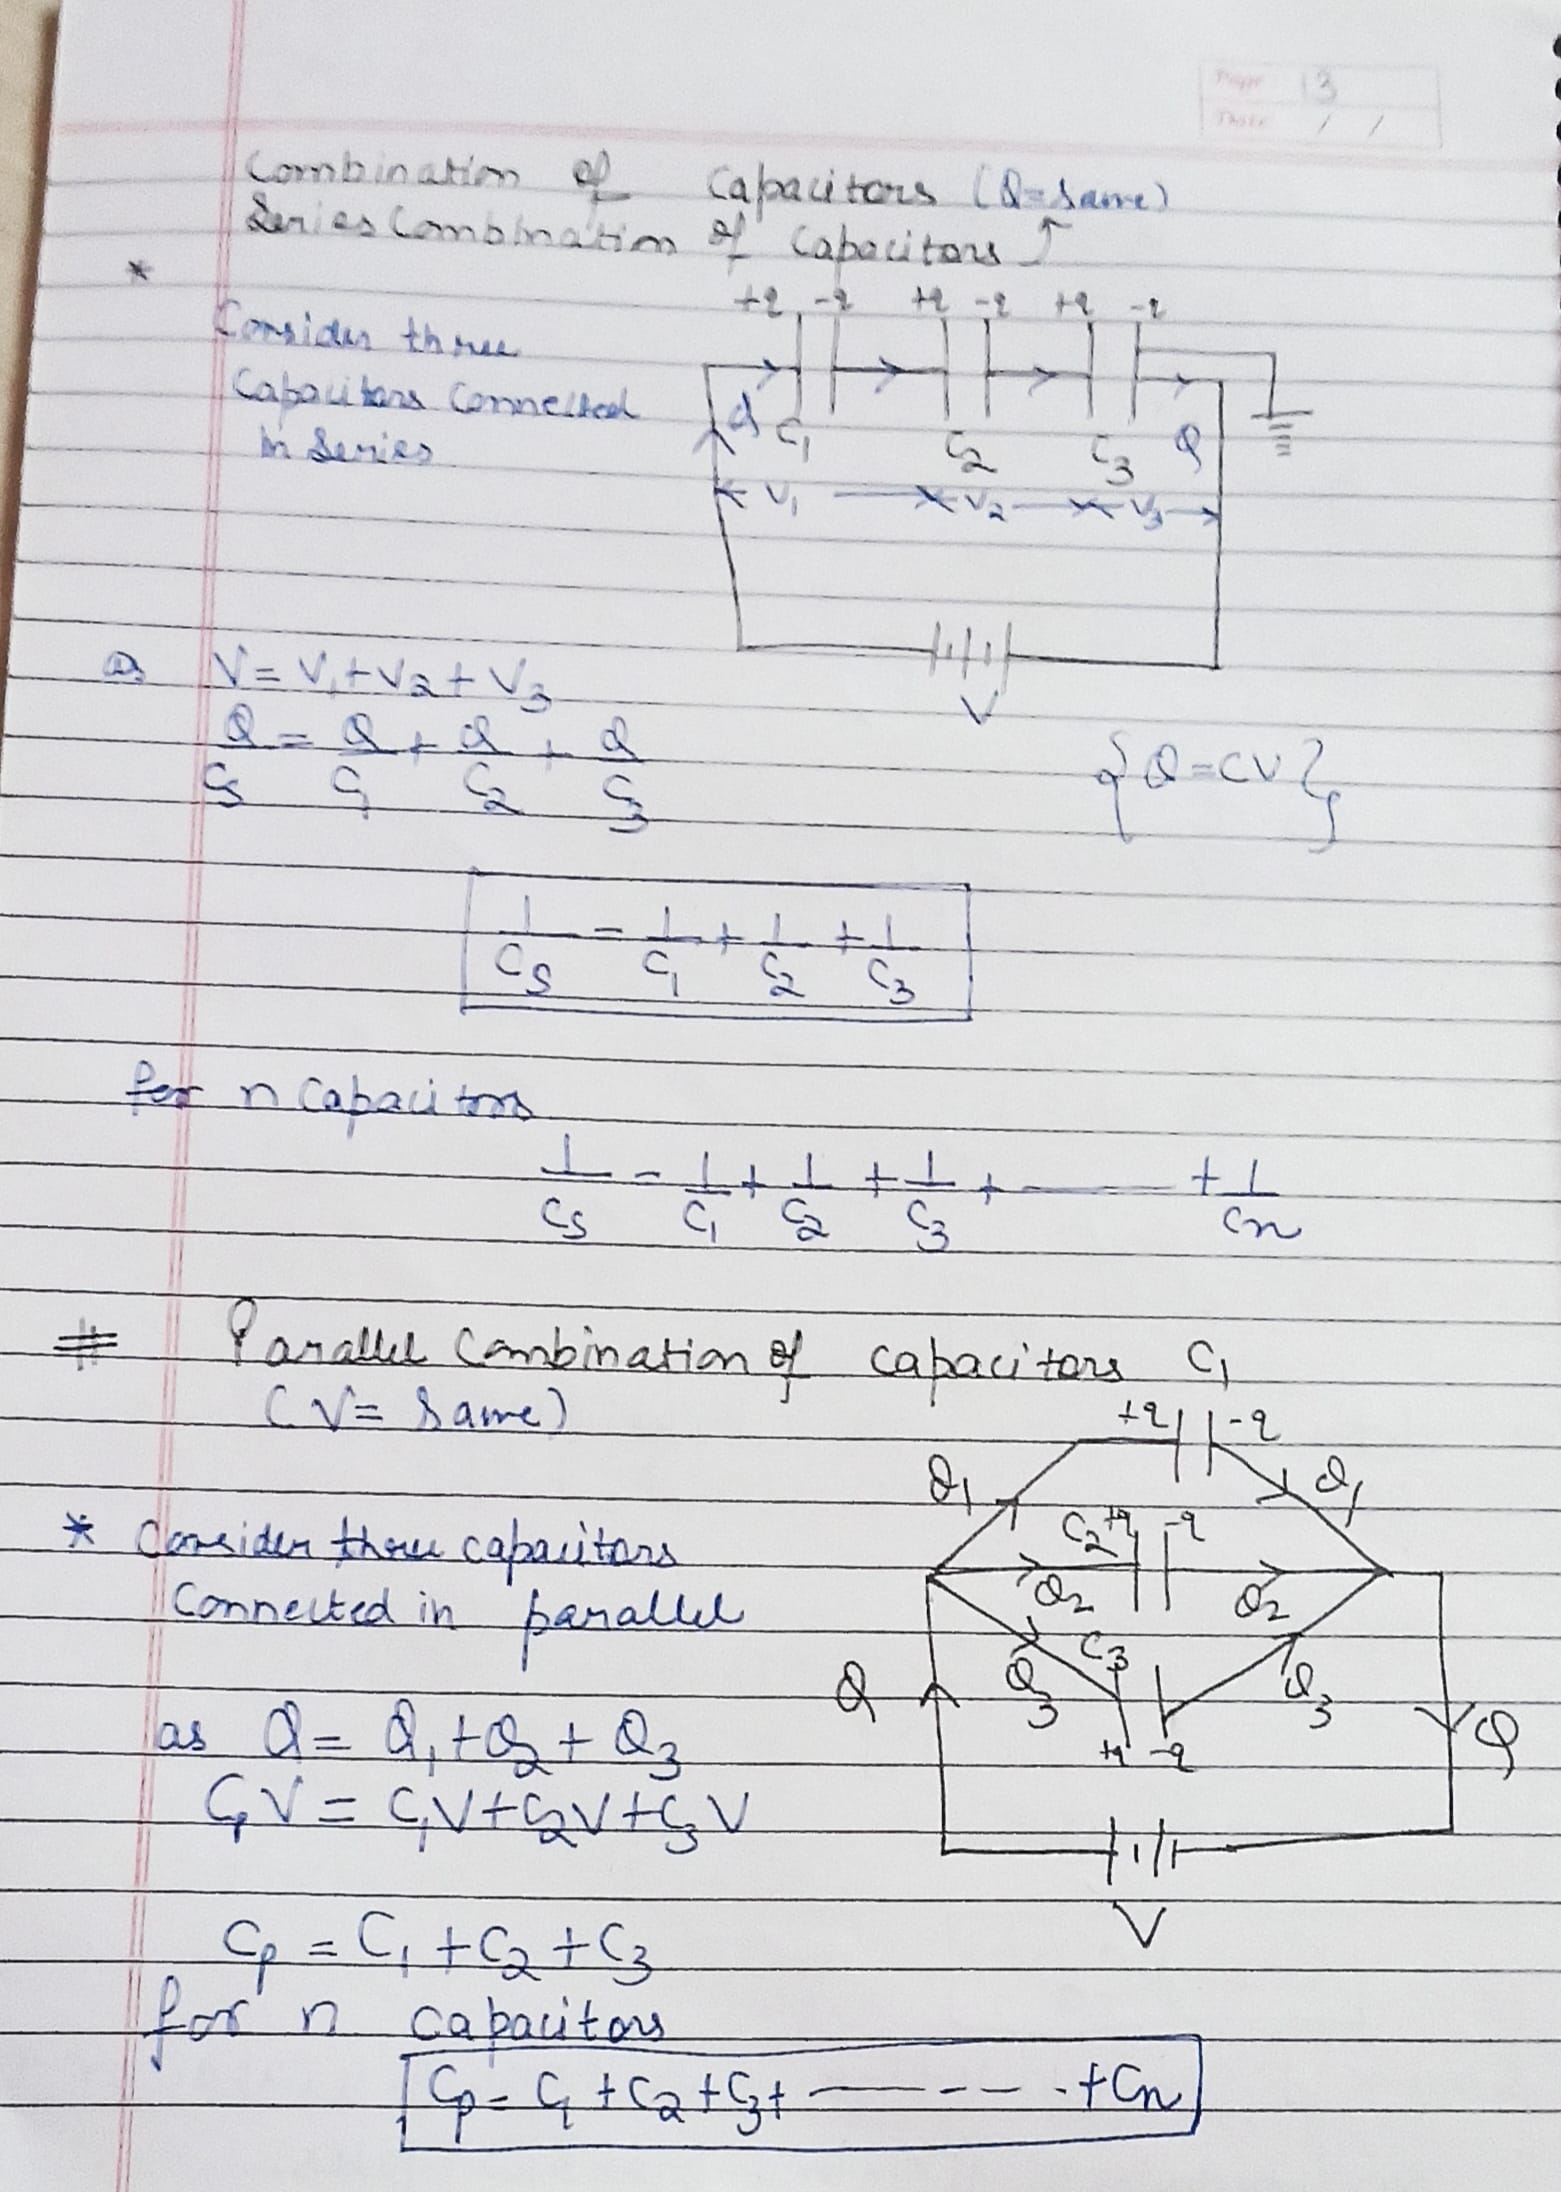 Page 13
Date / /
Combination of Capacitors (Q=Same)
Series Combination of Capacitors ↑
*
Consider three
Capacitors Connected
in Series
+q -q +q -q +q -q
Q C₁ C₂ C₃ Q
V₁ V₂ V₃
V
as V = V₁ + V₂ + V₃
Q/Cs = Q/C₁ + Q/C₂ + Q/C₃ {Q=CV}
1/Cs = 1/C₁ + 1/C₂ + 1/C₃
for n Capacitors
1/Cs = 1/C₁ + 1/C₂ + 1/C₃ + ——— + 1/Cn
# Parallel Combination of capacitors
(V = Same)
C₁
+q -q
Q₁ Q₁
C₂ +q -q
Q₂ Q₂
C₃
Q₃ Q₃
+q -q
Q Q
V
* Consider three capacitors
Connected in parallel
as Q = Q₁ + Q₂ + Q₃
CpV = C₁V + C₂V + C₃V
Cp = C₁ + C₂ + C₃
for n capacitors
Cp = C₁ + C₂ + C₃ + ——— - - - + Cn